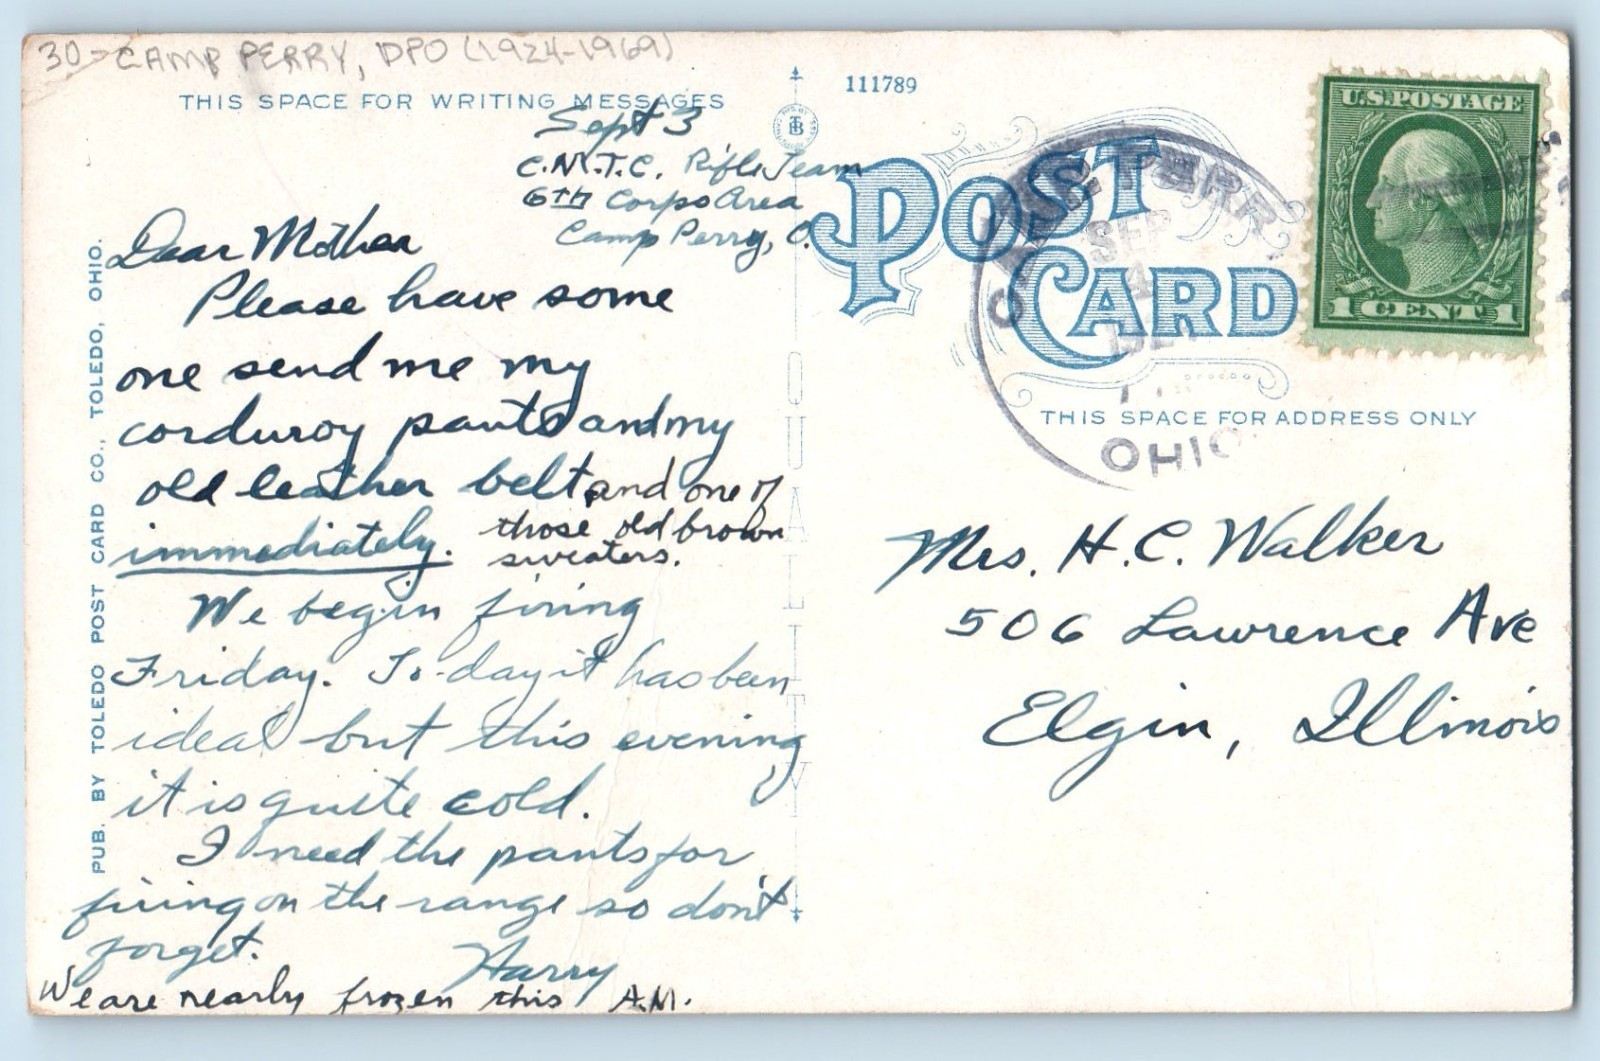 30- CAMP PERRY, DPO (1924-1969)
THIS SPACE FOR WRITING MESSAGES
Sept 3
C.M.T.C. Rifle Team
6th Corps Area
Camp Perry, O.
Dear Mother
Please have some
one send me my
corduroy pants and my
old leather belt and one of
those old brown
sweaters.
immediately.
We begin firing
Friday. To-day it has been
ideal but this evening
it is quite cold.
I need the pants for
firing on the range so don't
forget.
Harry
We are nearly frozen this A.M.
PUB. BY TOLEDO POST CARD CO., TOLEDO, OHIO.
QUALITY
111789
POST
CARD
CAMP PERRY
SEP
4
OHIO
U.S. POSTAGE
1 CENT 1
THIS SPACE FOR ADDRESS ONLY
Mrs. H. C. Walker
506 Lawrence Ave
Elgin, Illinois